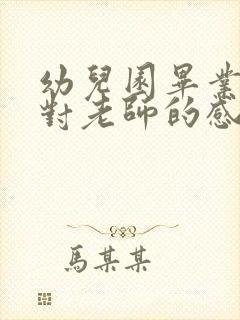 幼兒園畢業
對老師的感
馬某某